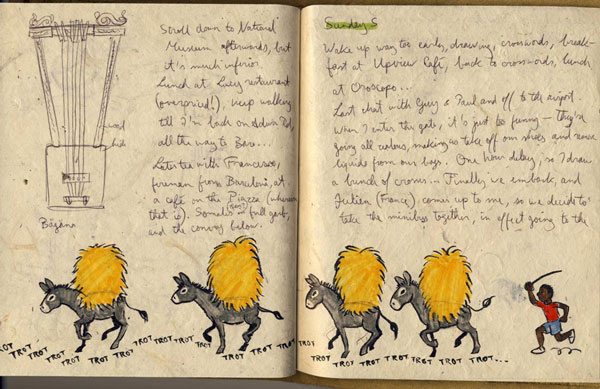 Stroll down to National
Museum afterwards, but
it's much inferior.
Lunch at Lucy restaurant
(overpriced!), keep walking
till I'm back on
all the way to
Later tea with Francesco,
fireman from Barcelona, at
a café on the Piazza (wherever
that is). Somalis in full garb,
and the convoy below.
wood
hide
Bägäna
TROT TROT TROT TROT TROT TROT TROT TROT TROT TROT TROT
Sunday 5
Wake up way too early, drawing, crosswords, break-
fast at Upview Café, back to crosswords, lunch
at Oroscopo...
Last chat with Guy & Paul and off to the airport.
When I enter the gate, it's just so funny – they're
going all zealous, making us take off our shoes and remove
liquids from our bags. One hour delay, so I draw
a bunch of crosses... Finally we embark, and
Julien (France) comes up to me, so we decide to
take the minibus together, in effect going to the
TROT TROT TROT TROT TROT TROT TROT...